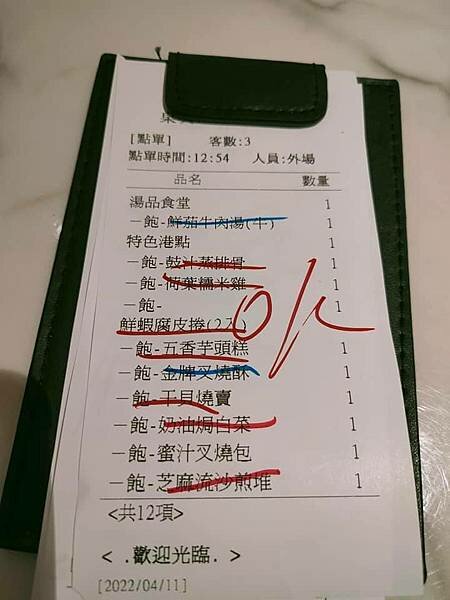 [點單] 客數:3
點單時間:12:54 人員:外場
品名 數量
湯品食堂 1
－飽-鮮茄牛肉湯(牛) 1
特色港點 1
－飽-鼓汁蒸排骨 1
－飽-荷葉糯米雞 1
－飽- 1
鮮蝦腐皮捲(2入)
－飽-五香芋頭糕 1
－飽-金牌叉燒酥 1
－飽-干貝燒賣 1
－飽-奶油焗白菜 1
－飽-蜜汁叉燒包 1
－飽-芝麻流沙煎堆 1
<共12項>
< .歡迎光臨. >
[2022/04/11]